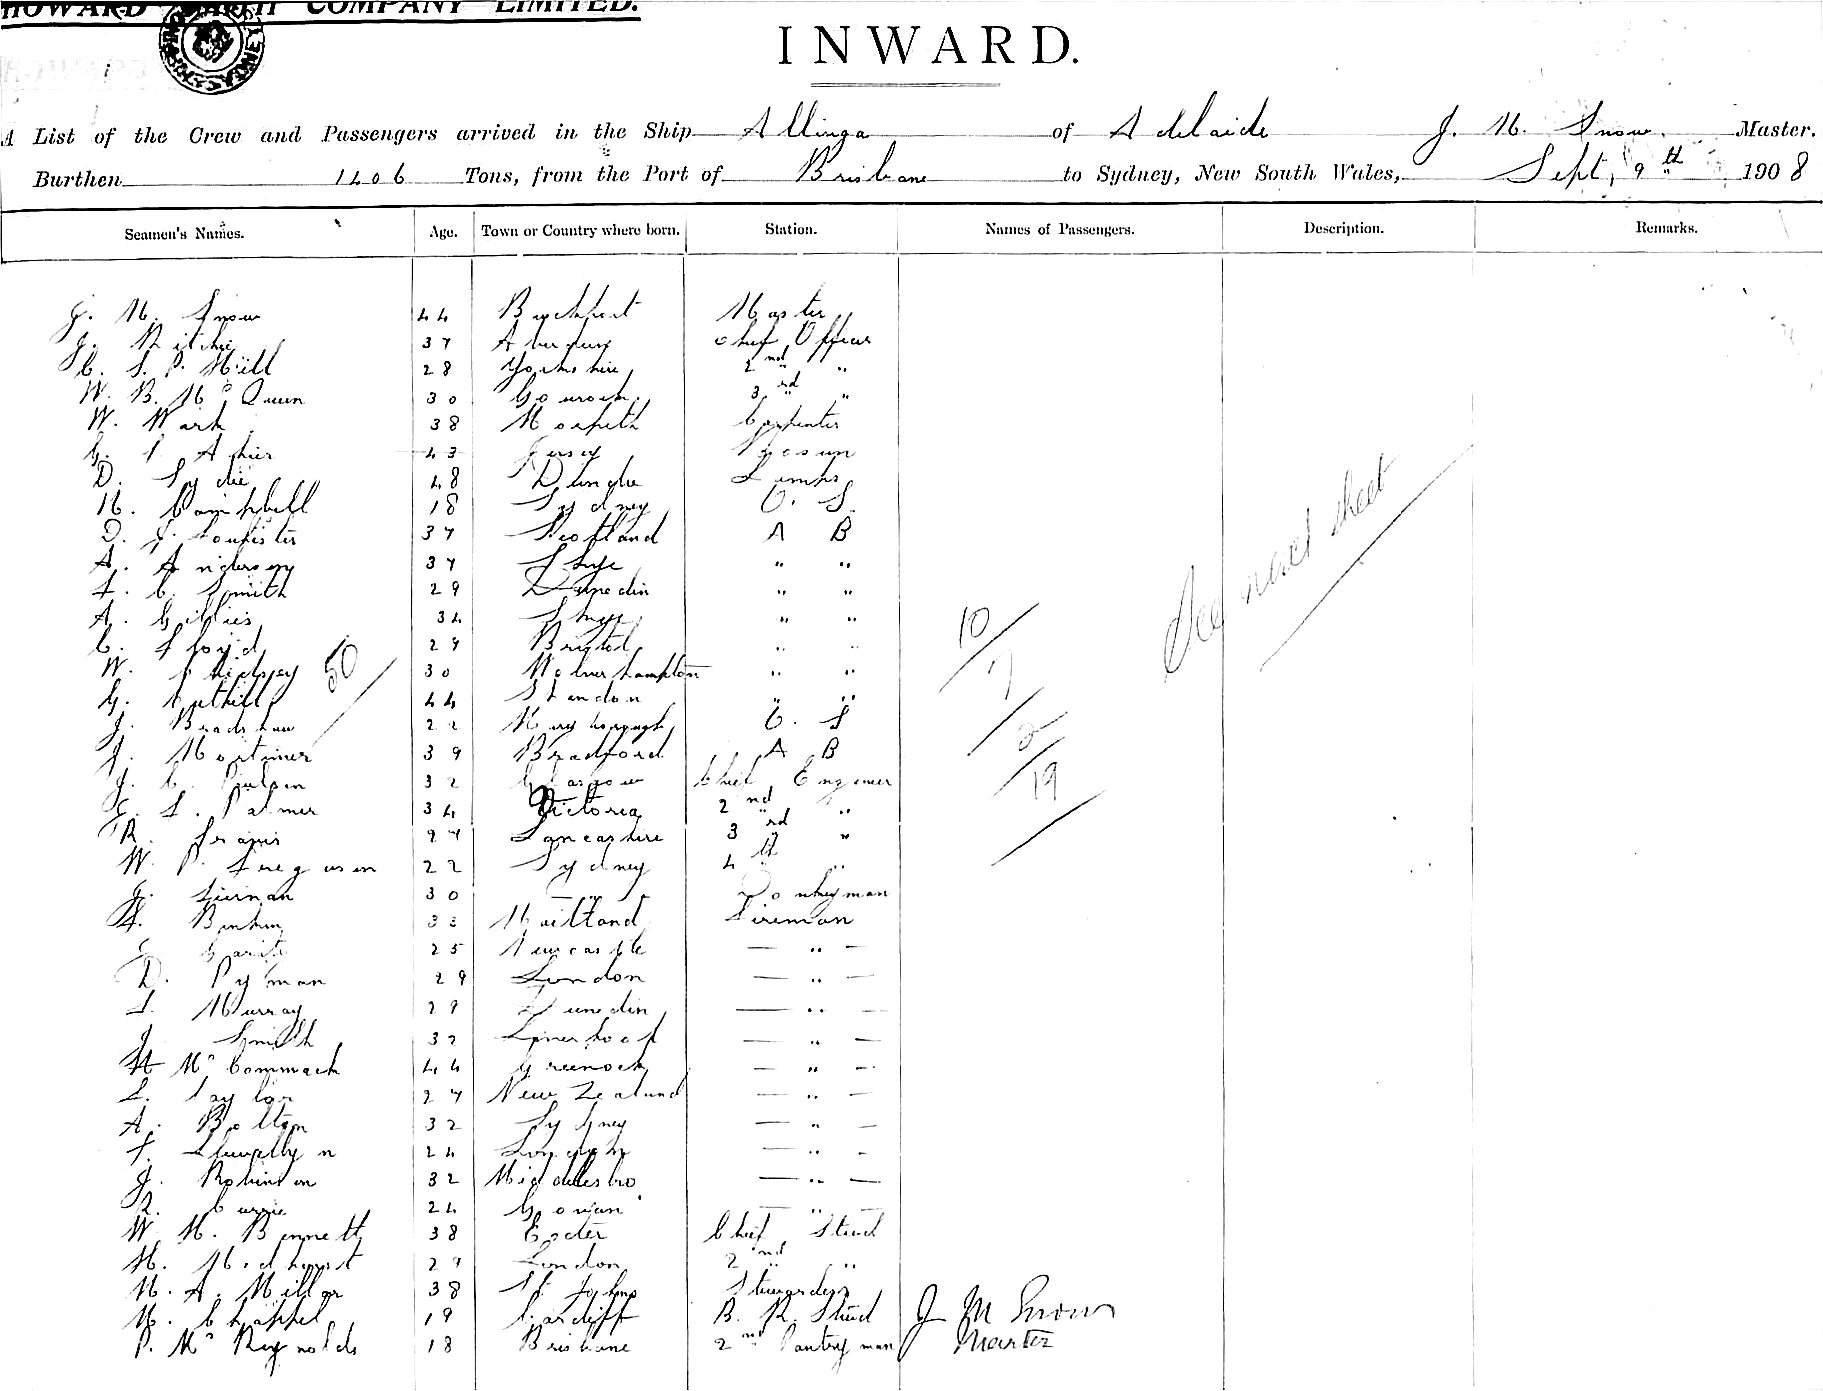 HOWARD SMITH COMPANY LIMITED.
INWARD.
A List of the Crew and Passengers arrived in the Ship Allinga of Adelaide J. M. Snow. Master.
Burthen 1406 Tons, from the Port of Brisbane to Sydney, New South Wales, Sept, 9th 1908
Seamen's Names. Age. Town or Country where born. Station. Names of Passengers. Description. Remarks.
J. M. Snow 44 Master
J. Ritchie 37 Chief Officer
C. S. P. Hill 28 Yorkshire 2nd "
W. B. Mc Queen 30 Gourock 3rd "
W. Wark 38 Morpeth Carpenter
G. 43 Jersey Bosun
D. 48 Dundee Lamps
H. Campbell 18 Sydney O. S.
D. J. 37 Scotland A B
A. Anderson 37 Skye " "
F. C. Smith 29 Dunedin " "
A. Gillies 34 Skye " "
C. Lloyd 29 Bristol " "
W. 30 Wolverhampton " "
G. Cuthill 44 " "
J. Bradshaw 22 Maryborough O. S
J. Mortimer 39 Bradford A B
J. C. 32 Glasgow Chief Engineer
E. L. Palmer 34 Victoria 2nd "
R. 27 Lancashire 3rd "
W. P. Ferguson 22 Sydney 4th "
J. Tiernan 30 — " — Donkeyman
33 Maitland Fireman
25 Newcastle — " —
D. Pyman 29 London — " —
L. Murray 29 Dunedin — " —
J. Smith 32 Liverpool — " —
H Mc Cormmack 44 Greenock — " —
L. Taylor 27 New Zealand — " —
A. Bolton 32 Sydney — " —
F. Llewellyn 24 London — " —
J. Robinson 32 Middlesbro — " —
R. Currie 24 Govan — " —
W. H. Bennett 38 Exeter Chief Steud
H. Medhurst 29 London 2nd "
M. A. Millar 38 St Johns Stewardess
H. Chappel 19 Cardiff B. R. Steud
P. Mc Reynolds 18 Brisbane 2nd Pantryman
50
10
7
2
19
See next sheet
J M Snow
Master